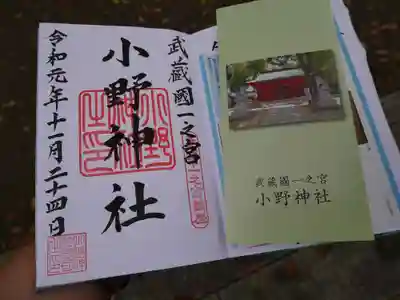 武蔵國一之宮
小野神社
令和元年十一月二十四日
武蔵國一之宮
小野神社